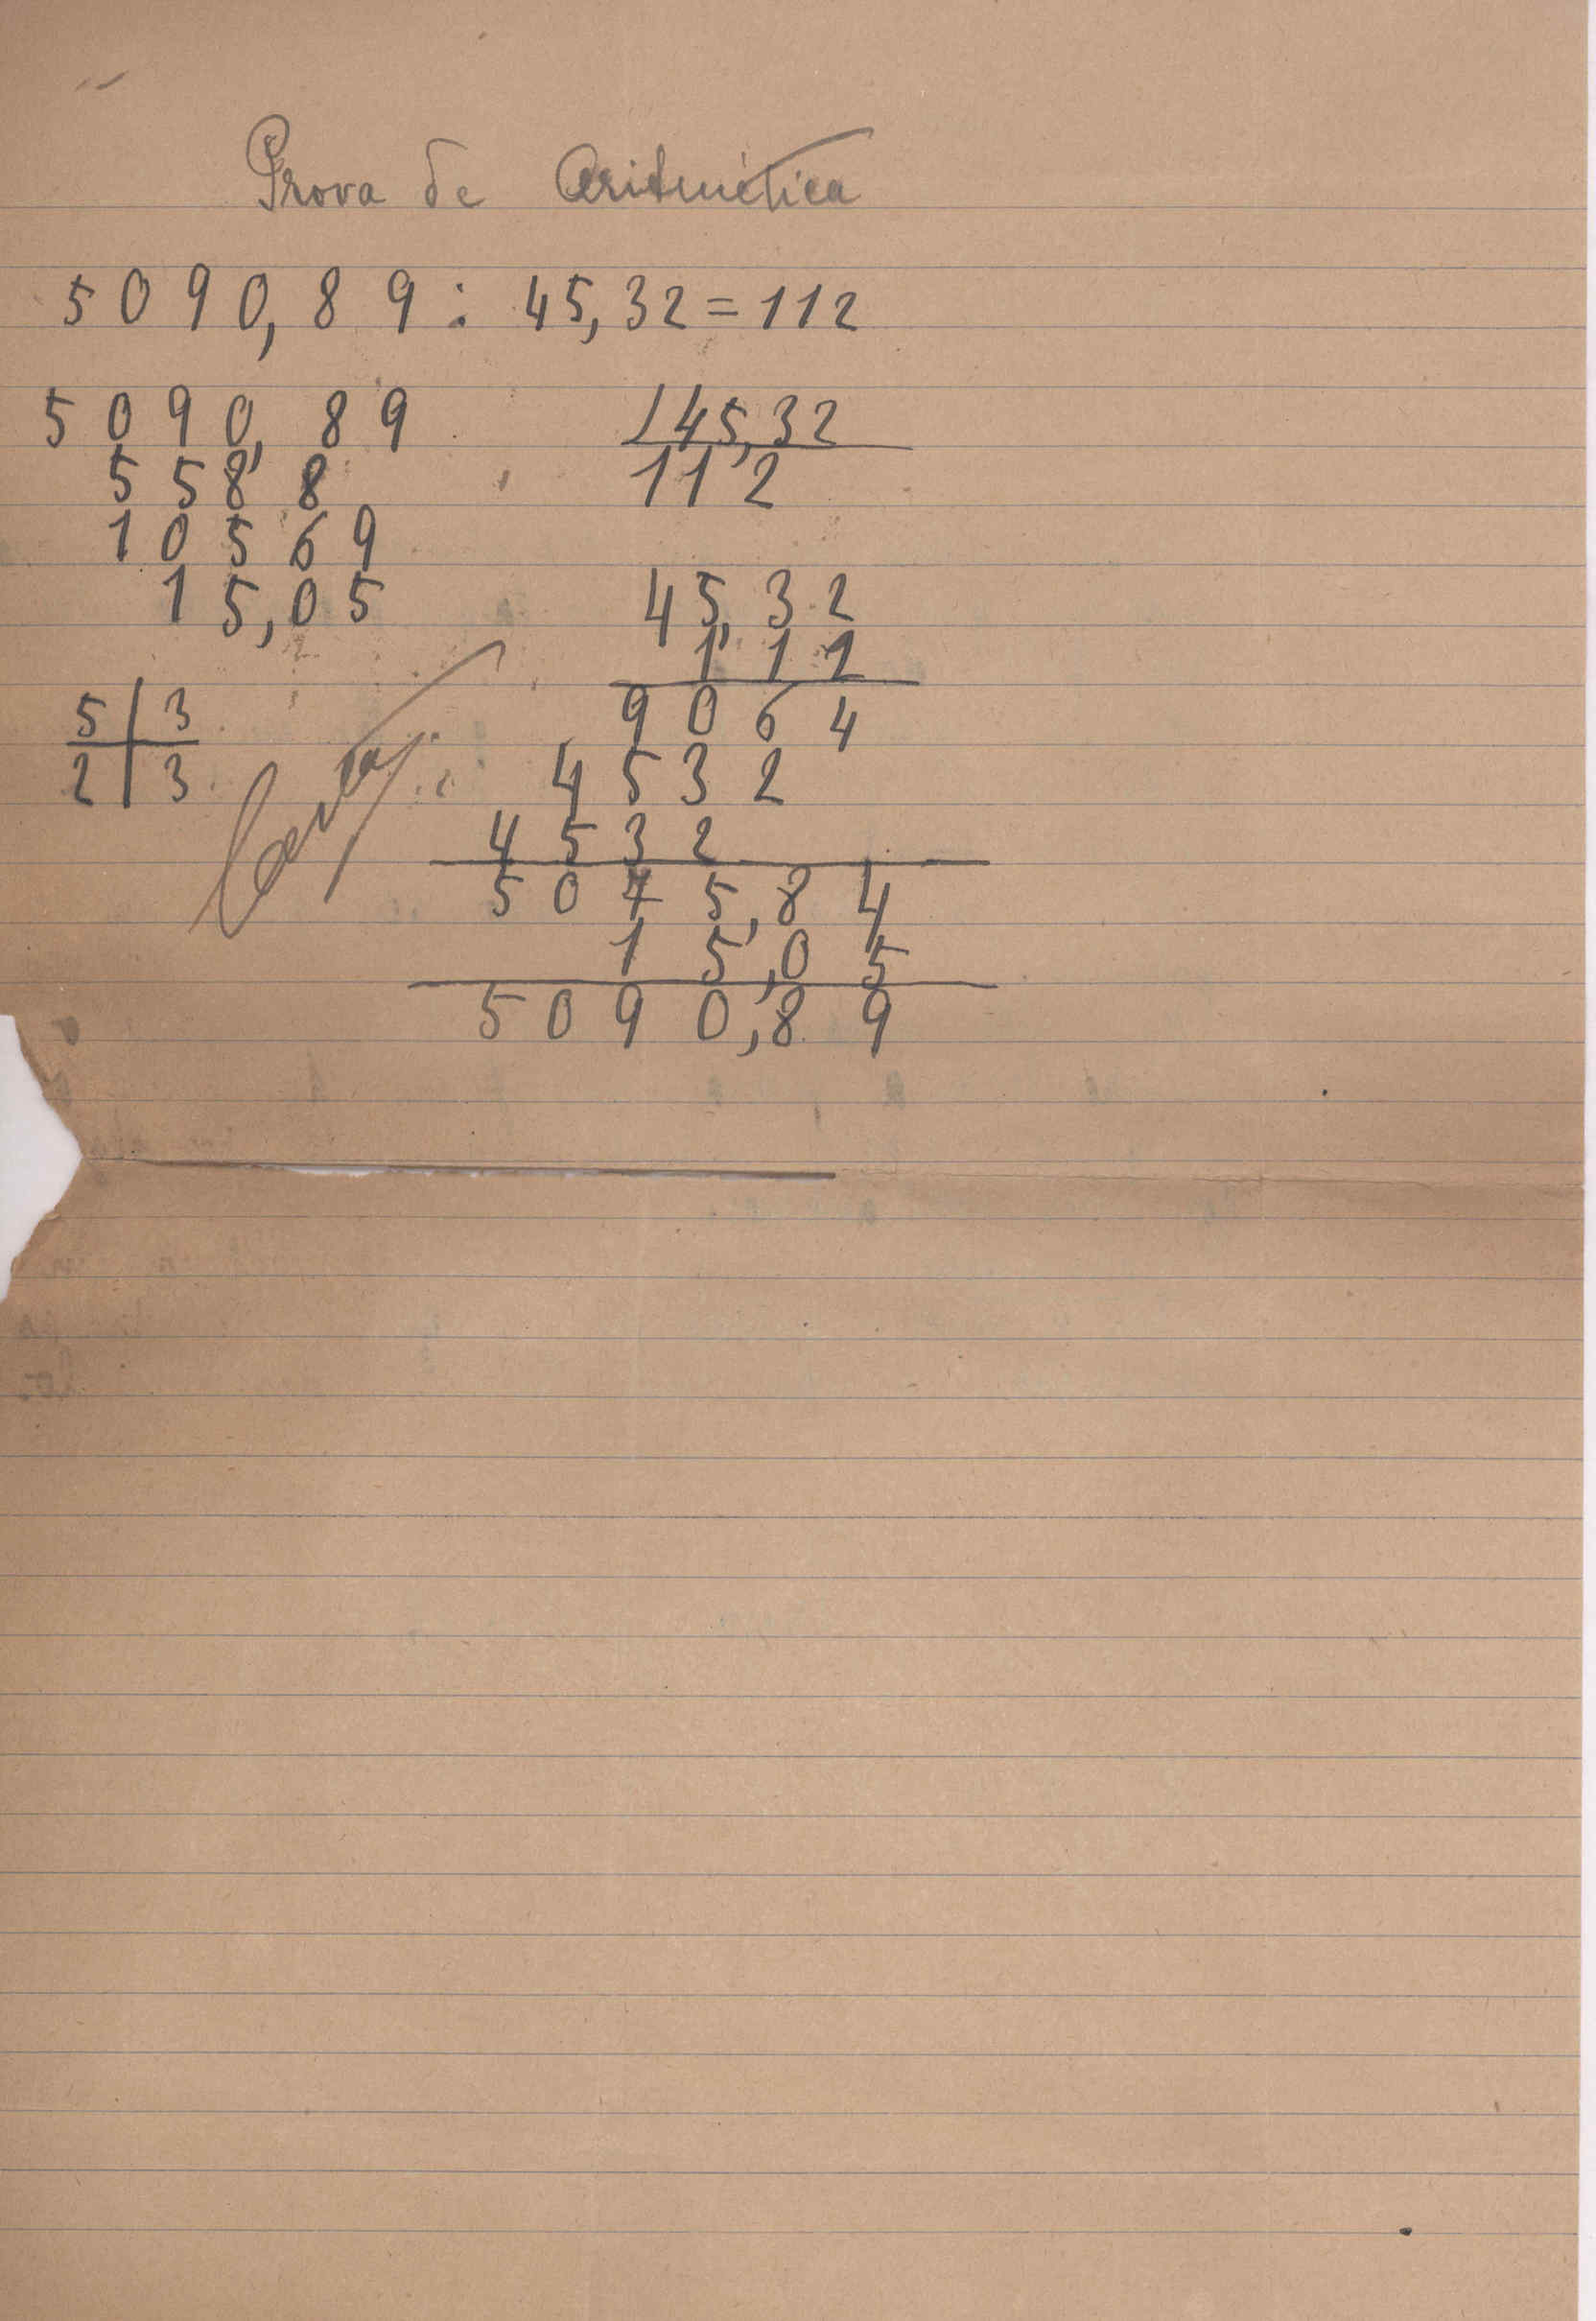 Prova de Aritmética
5090,89 : 45,32 = 112
5090,89 45,32
558,8 112
10569
15,05 45,32
112
5 3 9064
2 3 4532
4532
5075,84
15,05
5090,89